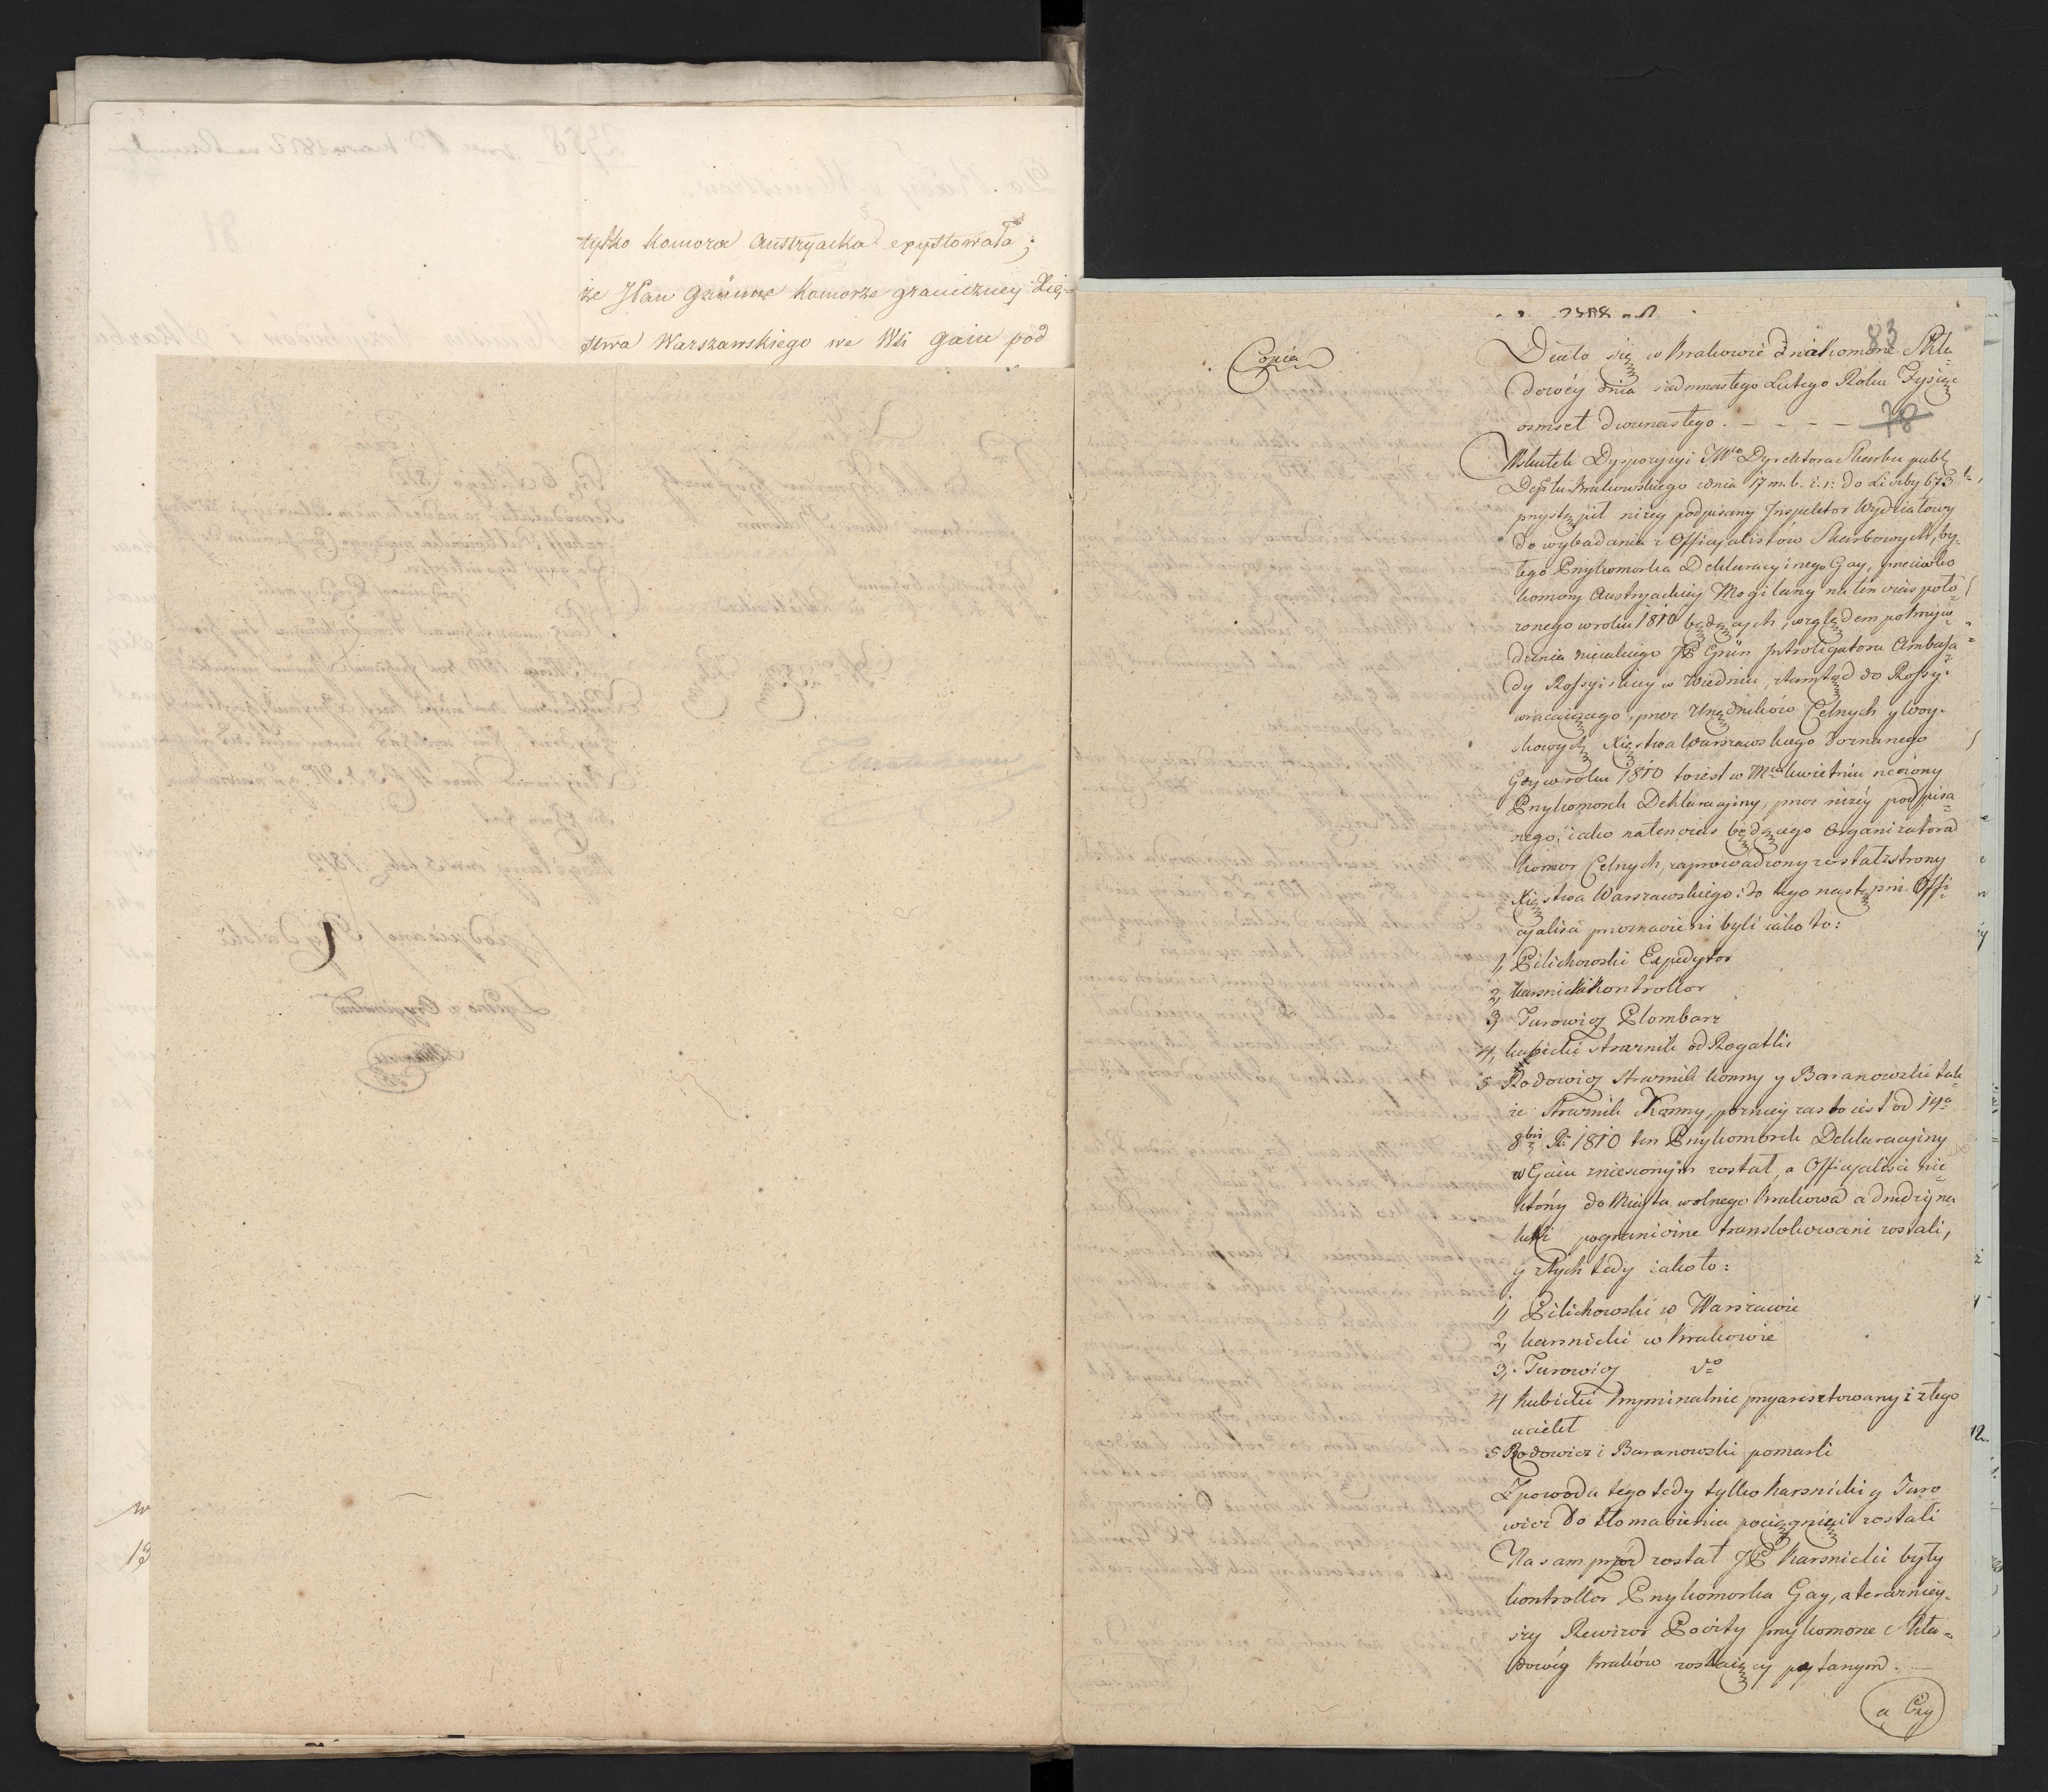 tylko komora Austryacka exystowała;
że JPan Grünne komorze graniczney Xię-
stwa Warszawskiego we Wsi Gaiu pod
83
Copia
Działo się w Krakowie na komorze Skła-
dowéy dnia siedmnastego Lutego Roku Tysiąc
osmset dwunastego. - - - - 78
Wskutek Dyspozycyi JWo Dyrektora Skarbu publ
Deptu Krakowskiego zdnia 17 m. b. i. r: do Liczby 673
przystąpił niżey podpisany Inspektor Wydziałowy
do wybadania z Officyalistów Skarbowych, by-
łego Przykomorka Deklaracyinego Gay, przeciwko
komory Austryackiey Mogilany na ten czas poło-
żonego w roku 1810 będących, względem potwier-
dzenia nieiakiego JP Grün Introligatora Ambassa-
dy Rossyiskiey w Wiedniu, ztamtąd do Rossyi
wracaiącego, przez Urzędników Celnych y Woy-
skowych Xięstwa Warszawskiego doznanego
Gdy w roku 1810 to iest w Mcu kwietniu rzeczony
Przykomorek Deklaracyiny, przez niżéy podpisa-
nego, iako natenczas będącego Organizatora
komor Celnych, zaprowadzony został z strony
Xięstwa Warszawskiego: do tego następni Offi-
cyaliści przeznaczeni byli iako to:
1, Pilichowski Expedytor
2, Karsnicki Kontrollor
3, Jurowicz Plombarz
4, Kubicki strażnik od Rogatki
5 Rodowicz Strażnik konny y Baranowski tak-
że Strażnik Konny, pózniey zas to iest od 14o
8bri Rku 1810 ten Przykomorek Deklaracyiny
w Gaiu zniesionym został, a Officyaliści nie-
którzy do Miasta wolnego Krakowa a drudzy na
luki pograniczne translokowani zostali,
y ztych tedy iako to:
1, Pilichowski w Warszawie
2, Karsnicki w Krakowie
3, Jurowicz do
4 Kubicki kryminalnie przyaresztowany i z tego
uciekł
5 Rodowicz i Baranowski pomarli
Z powodu tego tedy tylko Karsnicki y Juro
wicz do tłomaczenia pociągnięci zostali
Na sam przód został JP Karsnicki były
kontrollor Przykomorka Gay, a teraźniey-
szy Rewizor Poczty przy komorze Skła-
dowéy Kraków zostaiący pytanym. -
a Czy